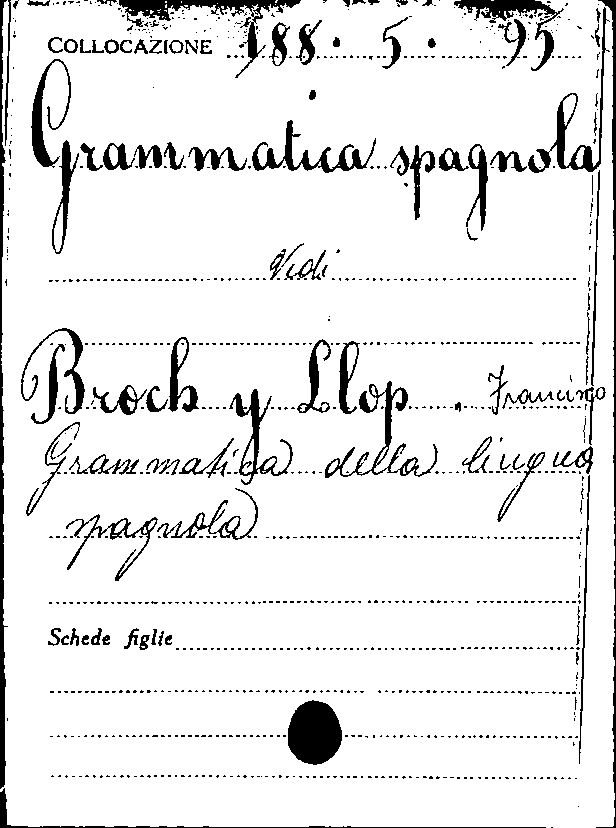 COLLOCAZIONE 188 · 5 · 95
Grammatica spagnola
Vedi
Broch y Llop . Francisco
Grammatica della lingua
spagnola
Schede figlie